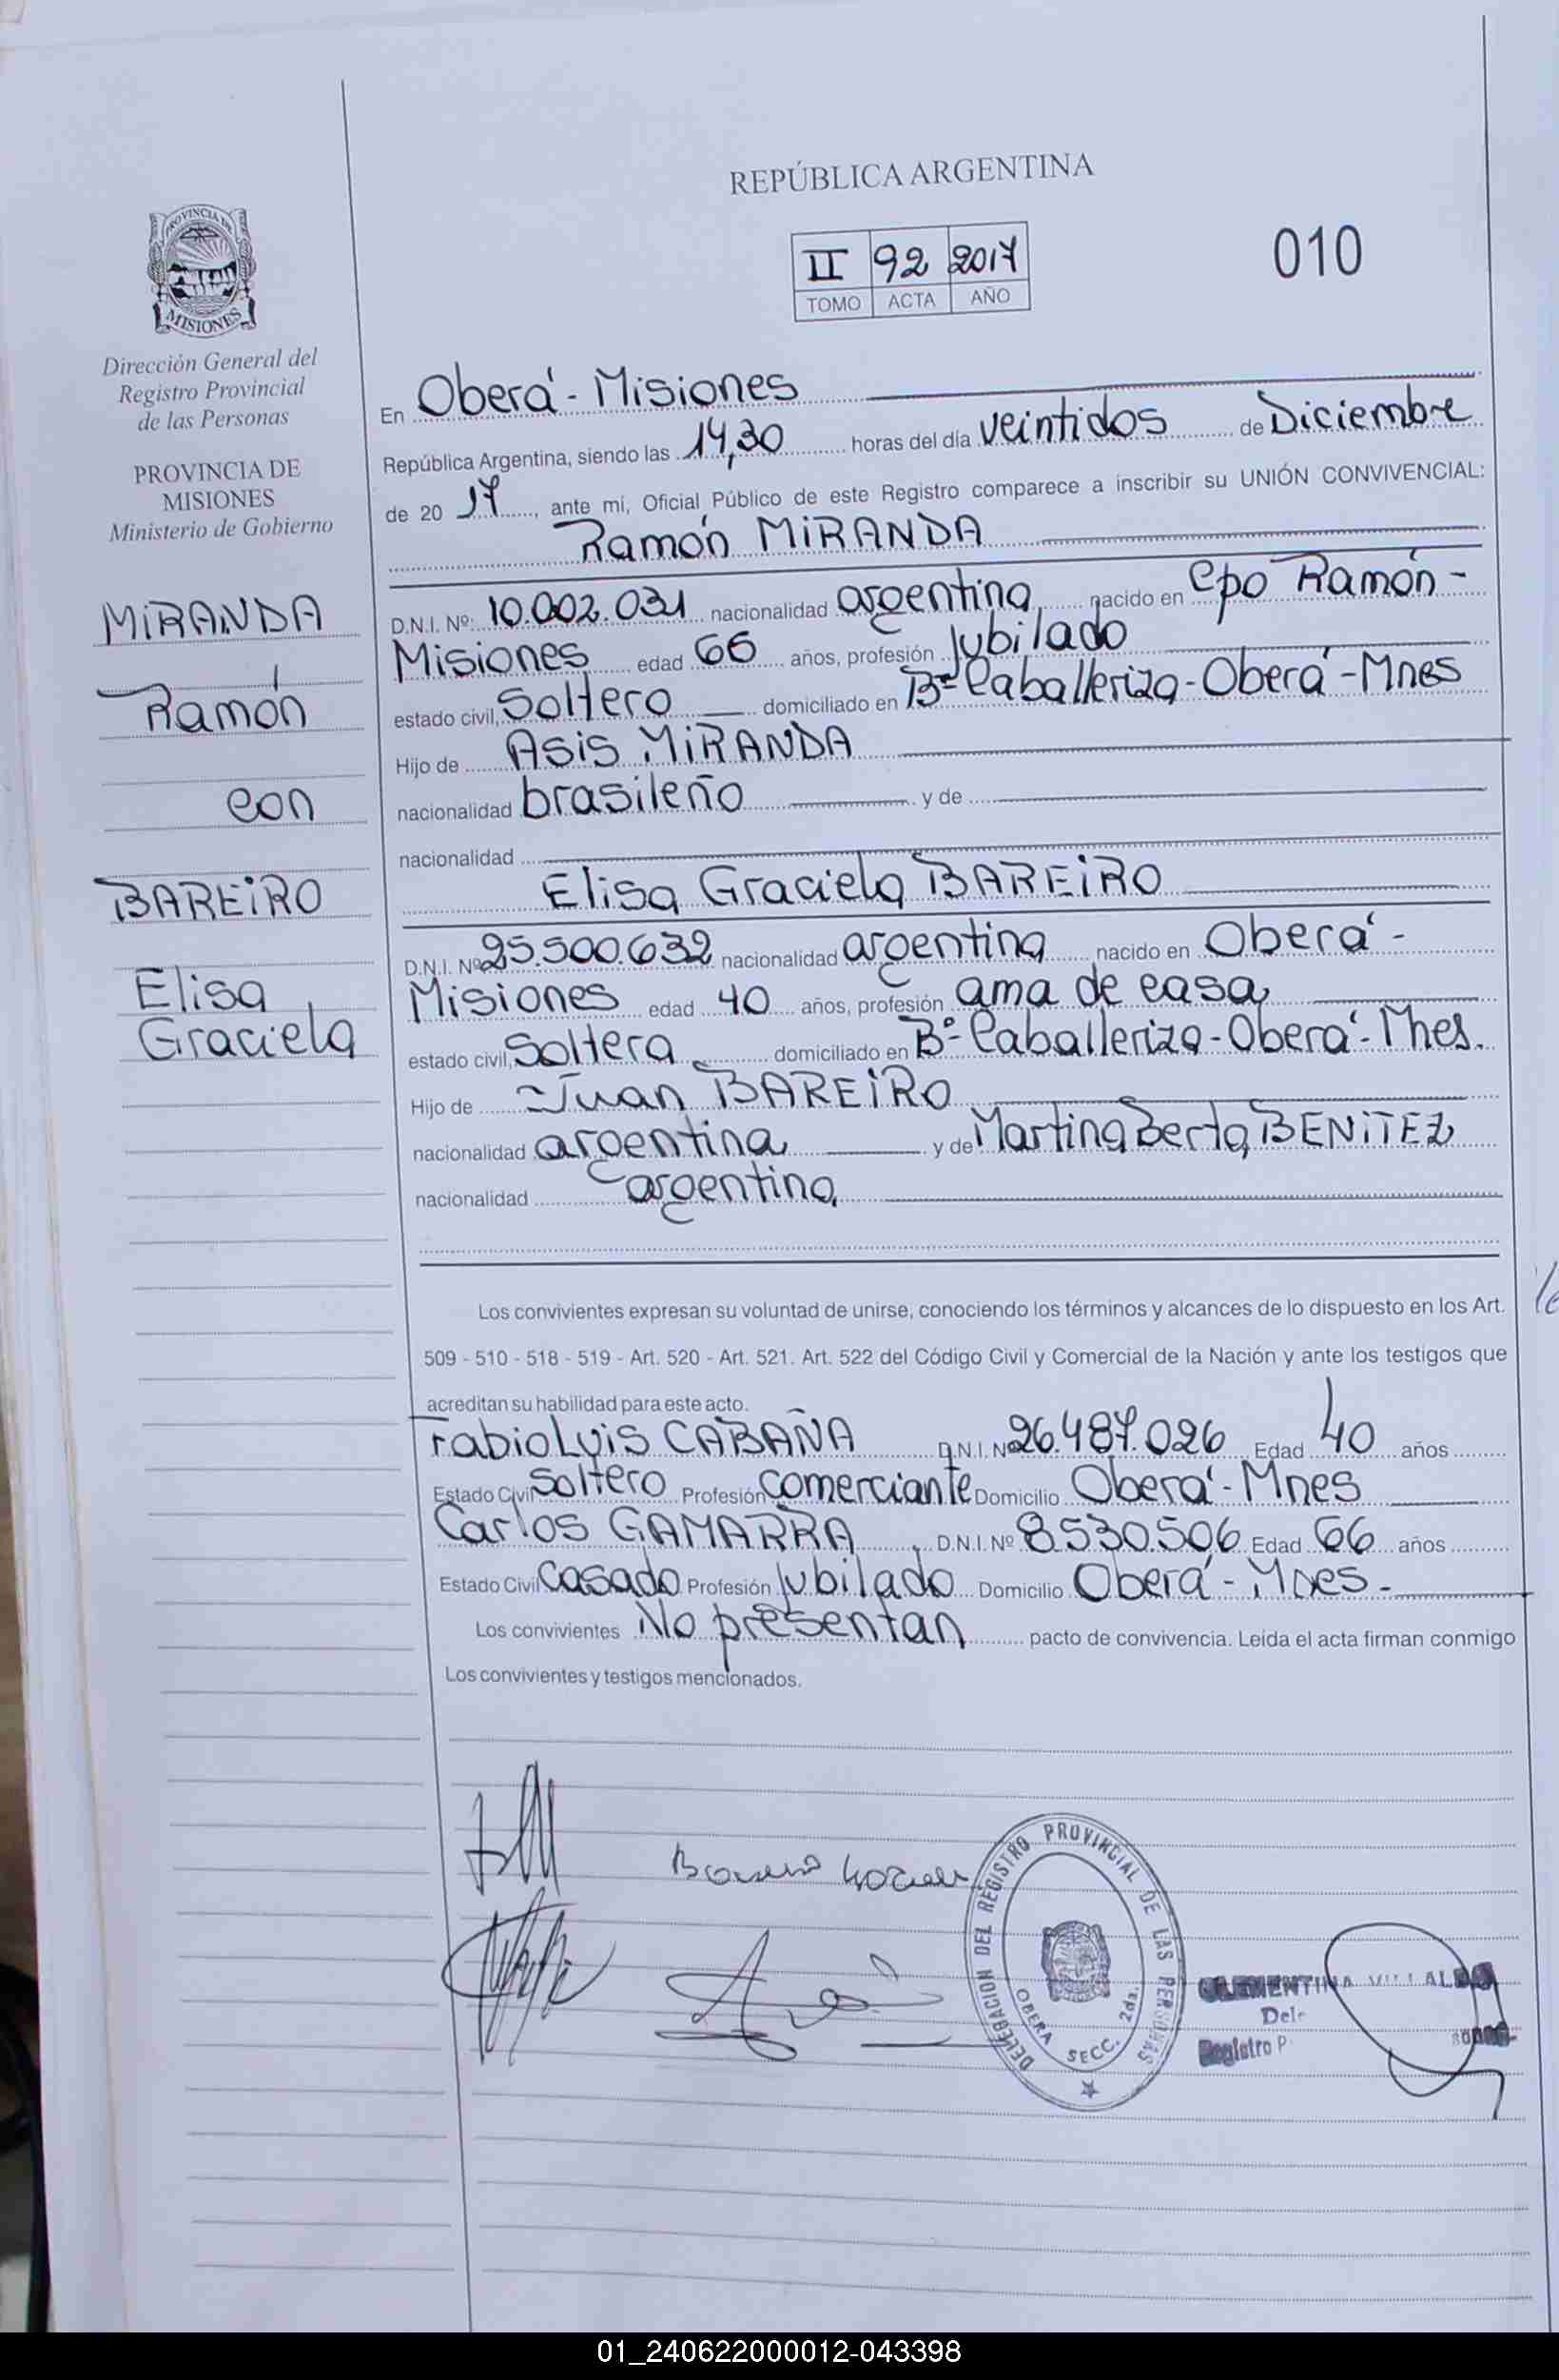 REPÚBLICA ARGENTINA
II 92 2017
TOMO ACTA AÑO
010
PROVINCIA DE
MISIONES
Dirección General del
Registro Provincial
de las Personas
PROVINCIA DE
MISIONES
Ministerio de Gobierno
MIRANDA
Ramón
con
BAREIRO
Elisa
Graciela
En Oberá - Misiones
República Argentina, siendo las 14,30 horas del día veintidos de Diciembre
de 20 17, ante mí, Oficial Público de este Registro comparece a inscribir su UNIÓN CONVIVENCIAL:
Ramón MIRANDA
D.N.I. Nº: 10.002.031 nacionalidad argentina nacido en Cpo Ramón -
Misiones edad 66 años, profesión Jubilado
estado civil, Soltero domiciliado en Bº Caballeriza - Oberá - Mnes
Hijo de Asis MIRANDA
nacionalidad brasileño y de
nacionalidad
Elisa Graciela BAREIRO
D.N.I. Nº 25.500.632 nacionalidad argentina nacido en Oberá -
Misiones edad 40 años, profesión ama de casa
estado civil, Soltera domiciliado en Bº Caballeriza - Oberá - Mnes.
Hijo de Juan BAREIRO
nacionalidad argentina y de Martina Berta BENITEZ
nacionalidad argentina
Los convivientes expresan su voluntad de unirse, conociendo los términos y alcances de lo dispuesto en los Art.
509 - 510 - 518 - 519 - Art. 520 - Art. 521. Art. 522 del Código Civil y Comercial de la Nación y ante los testigos que
acreditan su habilidad para este acto.
Fabio Luis CABAÑA D.N.I. Nº 26.487.026 Edad 40 años
Estado Civil Soltero Profesión Comerciante Domicilio Oberá - Mnes
Carlos GAMARRA D.N.I. Nº 8.530.506 Edad 66 años
Estado Civil Casado Profesión Jubilado Domicilio Oberá - Mnes -
Los convivientes No presentan pacto de convivencia. Leida el acta firman conmigo
Los convivientes y testigos mencionados.
DELEGACION DEL REGISTRO PROVINCIAL DE LAS PERSONAS
OBERA SECC. 2da.
CLEMENTINA
Registro P
01_240622000012-043398